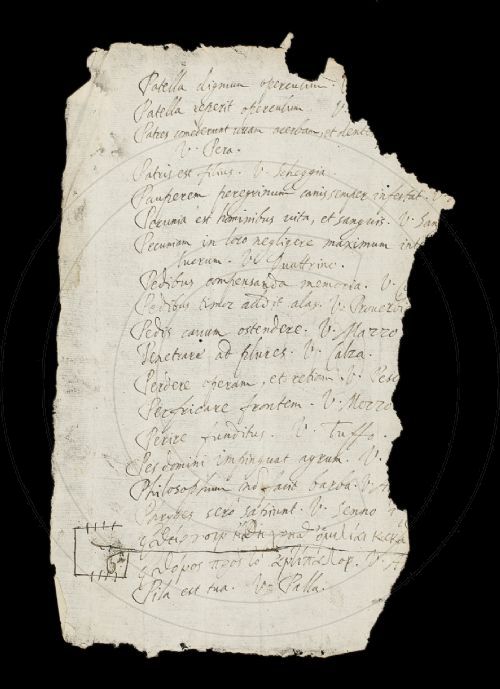 Patella dignum operculum.
Patella reperit operculum. V
Patres comederunt uvam acerbam, et dente
V. Pera.
Patris est filius. V. Scheggia.
Pauperem peregrinum canis semper infestat. V.
Pecunia est hominibus vita, et sanguis. V. San
Pecuniam in loco negligere maximum inte
lucrum. V. Quattrino.
Pedibus compensanda memoria. V.
Pedibus timor addit alas. V. Proverbi
Pedis caium ostendere. V. Mazzo
Penetrare ad plures. V. Calza.
Perdere operam, et retiom. V. Pesc
Perfricare frontem. V. Mozzo
Perire funditus. V. Tuffo.
Pes domini impinguat agrum. V.
Philosophum non facit barba. V. A
Phryges serò sapiunt. V. Senno
V. A
Pila est tua. V. Palla.